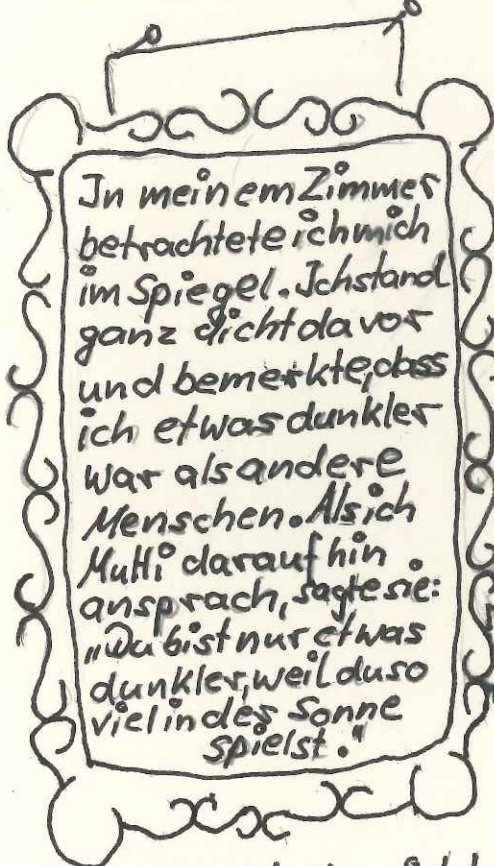 In meinem Zimmer
betrachtete ich mich
im Spiegel. Ich stand
ganz dicht davor
und bemerkte, dass
ich etwas dunkler
war als andere
Menschen. Als ich
Mutti darauf hin
ansprach, sagte sie:
„Du bist nur etwas
dunkler, weil du so
viel in der Sonne
spielst."